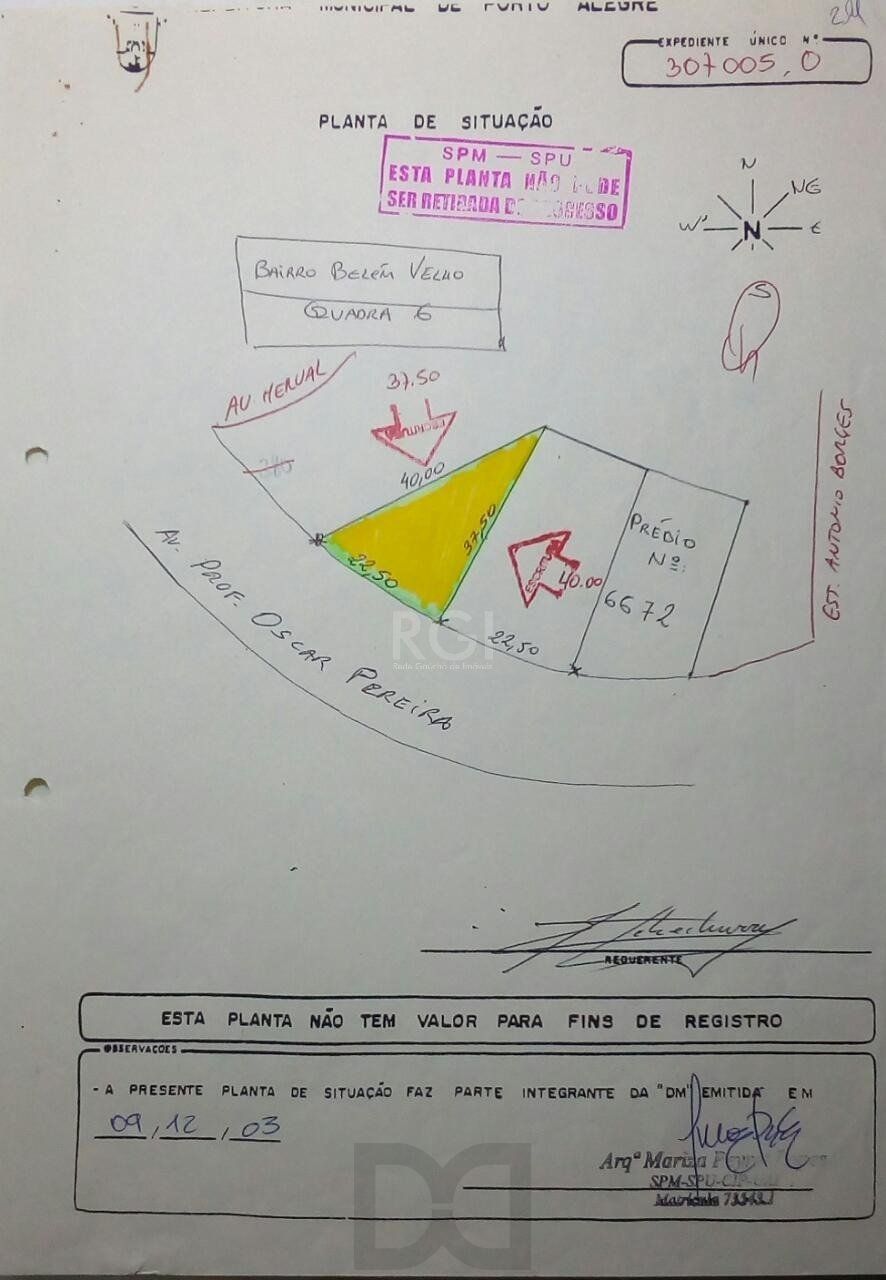 MUNICIPAL DE PORTO ALEGRE
EXPEDIENTE ÚNICO Nº
307005,0
PLANTA DE SITUAÇÃO
SPM — SPU
ESTA PLANTA NÃO
SER RETIRADA
N
NE
W
N
E
S
BAIRRO BELÉM VELHO
QUADRA 6
AV HERVAL
37.50
ESCRITURA
40,00
37,50
22,50
ESCRITURA
40.00
22,50
PRÉDIO
Nº:
6672
EST. ANTONIO BORGES
AV. PROF. OSCAR PEREIRA
RGI
Rede Gaúcha de Imóveis
REQUERENTE
ESTA PLANTA NÃO TEM VALOR PARA FINS DE REGISTRO
OBSERVAÇÕES
- A PRESENTE PLANTA DE SITUAÇÃO FAZ PARTE INTEGRANTE DA "DM" EMITIDA EM
09,12,03
Arqª
SPM-SPU
Matrícula